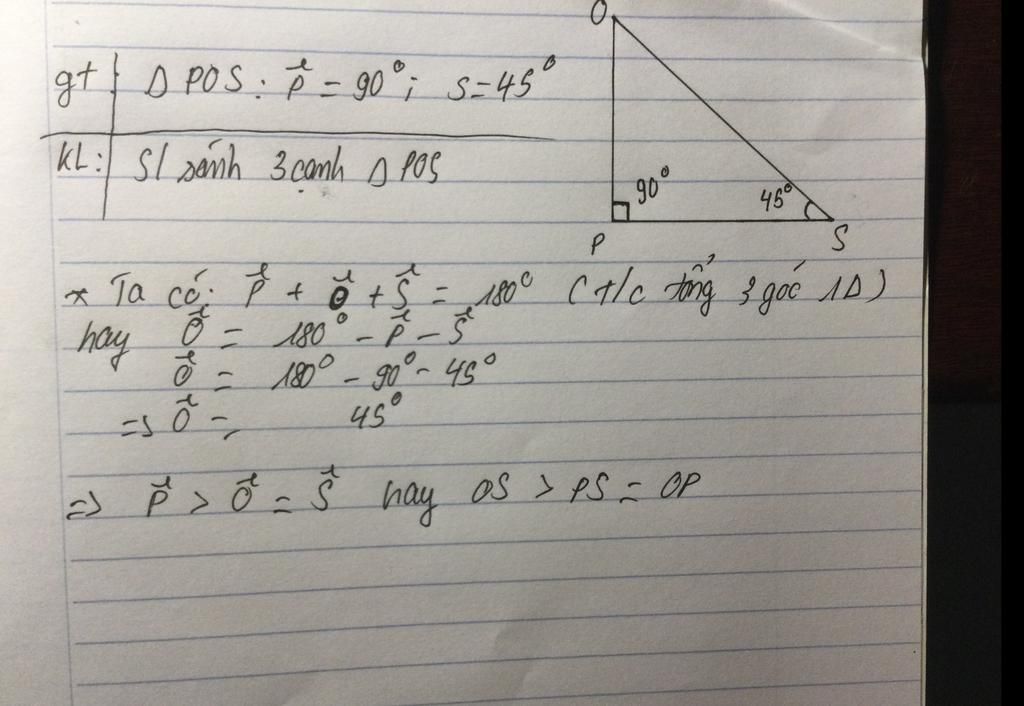 O
gt Δ POS: P̂ = 90°; S = 45°
KL: S/ sánh 3 cạnh Δ POS
90° 45°
P S
* Ta có: P̂ + Ô + Ŝ = 180° (t/c tổng 3 góc 1Δ)
hay Ô = 180° - P̂ - Ŝ
Ô = 180° - 90° - 45°
=> Ô = 45°
=> P̂ > Ô = Ŝ hay OS > PS = OP